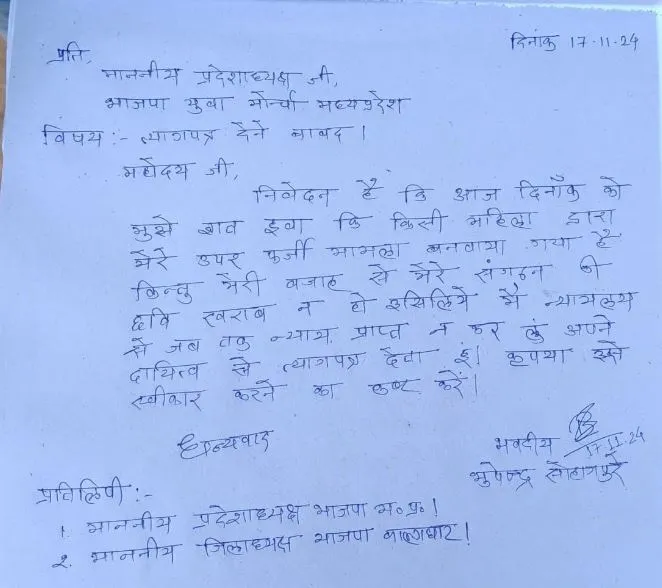 दिनांक 17-11-24
प्रति,
माननीय प्रदेशाध्यक्ष जी,
भाजपा युवा मोर्चा मध्यप्रदेश
विषय :- त्यागपत्र देने बावद ।
महोदय जी,
निवेदन है कि आज दिनाँक को
मुझे ज्ञात हुवा कि किसी महिला द्वारा
मेरे उपर फर्जी मामला बनवाया गया है
किन्तु मेरी वजाह से मेरे संगठन की
छवि खराब न हो इसिलिये मै न्यायलय
से जब तक न्याय प्राप्त न कर लुं अपने
दायित्व से त्यागपत्र देता हुं। कृपया इसे
स्वीकार करने का कष्ट करें।
धन्यवाद
भवदीय
17-11-24
भुपेन्द्र सोहागपुरे
प्रतिलिपी :-
1. माननीय प्रदेशाध्यक्ष भाजपा म.प्र.।
२. माननीय जिलाध्यक्ष भाजपा बालाघाट।